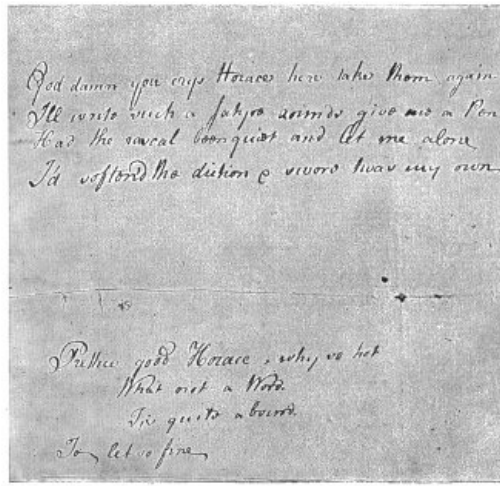 God damn you crys Horace here take them again
I'll write such a Satyre zounds give me a Pen
Had the rascal been quiet and let me alone
I'd softend the diction & swore twas my own
Prithee good Horace, why so hot
What not a Word
Tis quite absurd
To let so fine